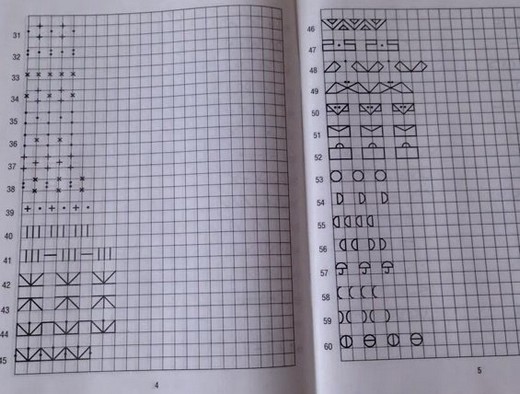 31
32
33
34
35
36
37
38
39
40
41
42
43
44
45
4
46
47
48
49
50
51
52
53
54
55
56
57
58
59
60
5